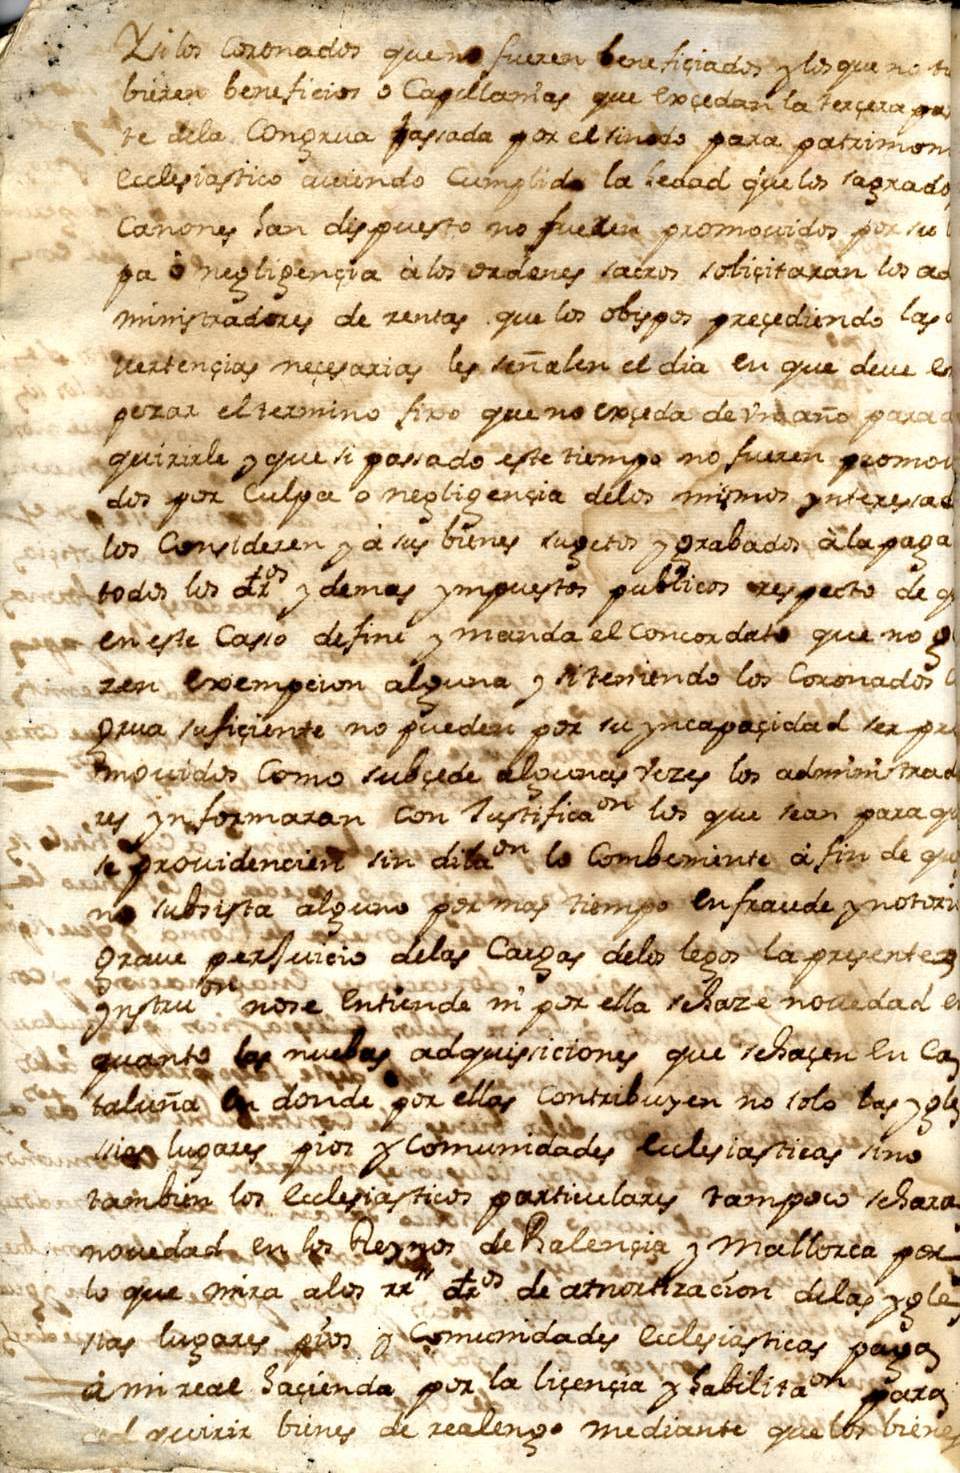 Xi los Coronados que no fueren benefiçiados y los que no tu
bieren beneficios o Capellanias que exçedan la terçera par
te dela Congrua passada por el sinodo para patrimoni
ecclesiastico auiendo Cumplido la hedad que los sagrados
Canones han dispuesto no fueren promouidos por su
pa ò negligençia à los ordenes sacros soliçitaran los ad
ministradores de rentas que los obispos preçediendo las
uertençias neçesarias les señalen el dia en que deue em
pezar el termino fixo que no exçeda de vn año para a
quirirle y que si passado este tiempo no fueren promoui
dos por Culpa o negligençia delos mismos ynteresad
los Consideren y à sus bienes sugetos y grabados à la paga
todos los dr̄os y demas ympuestos publicos respecto de q
en este Casso define y manda el Concordato que no g
zen exempcion alguna y si teniendo los Coronados
grua sufiçiente no pueden por su yncapaçidad ser pr
mouidos Como subçede algunas vezes los administrad
res ynformaran con Justificaon los que sean para qu
se prouidencien sin dilaon lo Combeniente à fin de que
no subsista alguno por mas tiempo en fraude y notori
graue perJuicio delas Cargas delos legos la presente
ynstruon no se entiende ni por ella se haze nouedad en
quanto las nuebas adquissiciones que se haçen en Ca
taluña en donde por ellas Contribuyen no solo las ygle
sias lugares pios y Comunidades ecclesiasticas sino
tambien los ecclesiasticos particulares tampoco se hara
nouedad en los Reynos de Valençia y Mallorca por
lo que mira a los rrs dr̄os de amortizacion delas ygle
sias lugares pios y Comunidades ecclesiasticas paga
à mi real haçienda por la liçençia y habilitaon para
ad quirir bienes de realengo mediante que los bienes